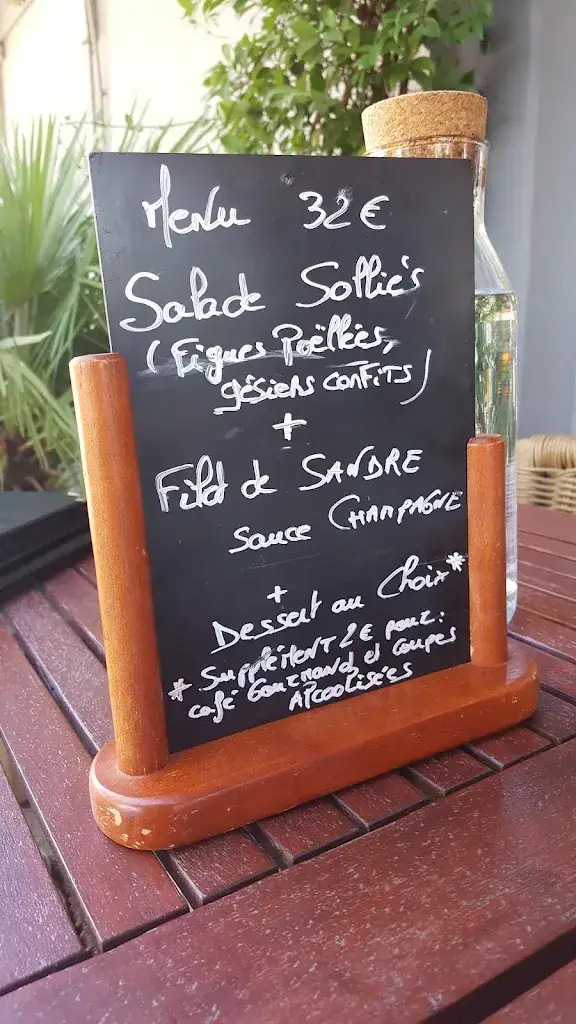 Menu 32€
Salade Solliès
(Figues Poëllées,
gésiers confits)
+
Filet de SANDRE
sauce CHAMPAGNE
+
Dessert au Choix*
* SUPPLÉMENT 2€ pour:
café Gourmand et coupes
Alcoolisées